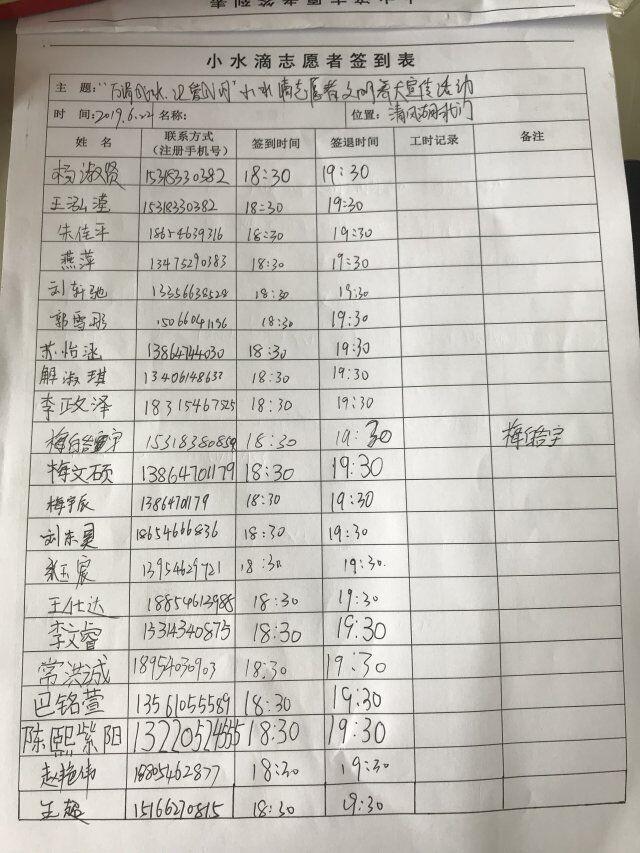 小水滴志愿者签到表
主 题: 小水滴志愿者文明 大宣传活动
时 间:2019.6.22 名称: 位置: 清风湖北门
姓 名 联系方式(注册手机号) 签到时间 签退时间 工时记录 备注
杨淑贤 15318330382 18:30 19:30
王泓滢 15318330382 18:30 19:30
朱佳平 18654639316 18:30 19:30
燕萍 13475290383 18:30 19:30
刘轩驰 13356638528 18:30 19:30
郭雪彤 18:30 19:30
苏怡涵 13864744030 18:30 19:30
解淑琪 13406148632 18:30 19:30
李政泽 18315467525 18:30 19:30
18:30 19:30
梅文硕 13864701179 18:30 19:30
梅宇辰 1386470179 18:30 19:30
刘东昊 18654666836 18:30 19:30
张玉宸 13954629721 18:30 19:30.
王仕达 18854613988 18:30 19:30
李文睿 13314340875 18:30 19:30
常洪诚 18954030903 18:30 19:30
巴铭萱 13561055589 18:30 19:30
陈熙紫阳 18:30 19:30
赵艳伟 18805462877 18:30 19:30
王超 15166270815 18:30 19:30